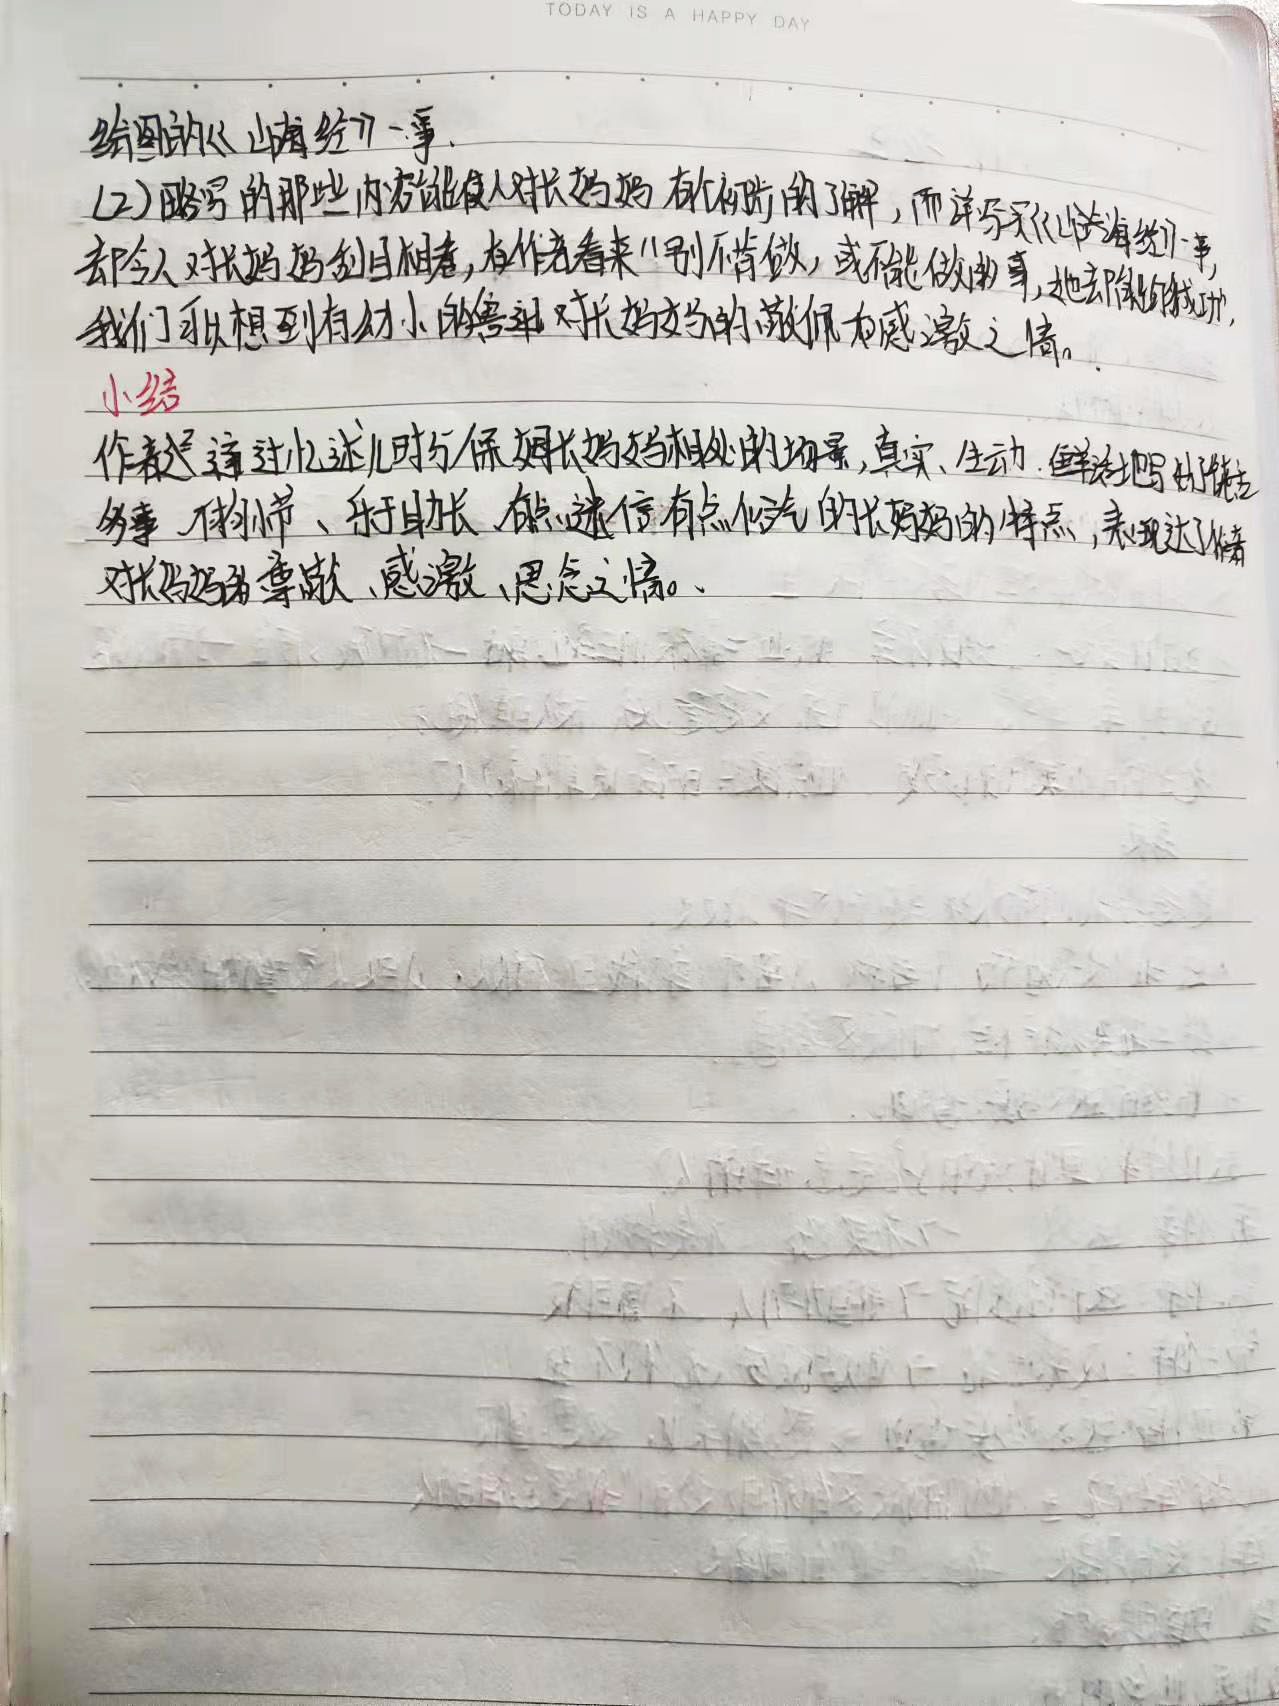 TODAY IS A HAPPY DAY
绘图的《山海经》一事.
(2)略写的那些内容能使人对长妈妈有个初步的了解，而详写买《山海经》一事，
却令人对长妈妈刮目相看，在作者看来"别不肯做，或不能做的事，她却能够成功"，
我们可以想到有幼小的鲁迅对长妈妈的敬佩和感激之情。
小结
作者通过忆述儿时与保姆长妈妈相处的场景，真实、生动.鲜活地写出了
多事、不拘小节、乐于助长、有点迷信有点俗气的长妈妈的特点，表现达了作者
对长妈妈的尊敬、感激、思念之情。